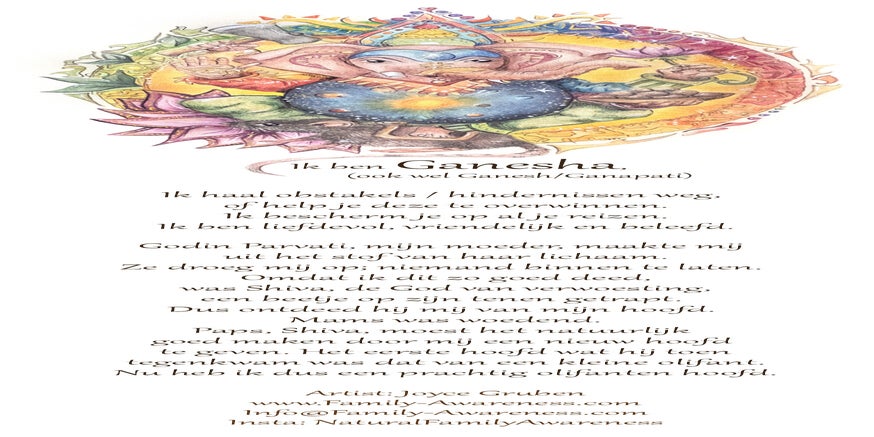 Ik ben Ganesha
(ook wel Ganesh/Ganapati)
Ik haal obstakels / hindernissen weg,
of help je deze te overwinnen.
Ik bescherm je op al je reizen.
Ik ben liefdevol, vriendelijk en beleefd.
Godin Parvati, mijn moeder, maakte mij
uit het stof van haar lichaam.
Ze droeg mij op; niemand binnen te laten.
Omdat ik dit zo goed deed,
was Shiva, de God van verwoesting,
een beetje op zijn tenen getrapt.
Dus ontdeed hij mij van mijn hoofd.
Mams was woedend.
Paps, Shiva, moest het natuurlijk
goed maken door mij een nieuw hoofd
te geven. Het eerste hoofd wat hij toen
tegenkwam was dat van een kleine olifant.
Nu heb ik dus een prachtig olifanten hoofd.
Artist: Joyce Gruben
www.Family-Awareness.com
Info@Family-Awareness.com
Insta: NaturalFamilyAwareness